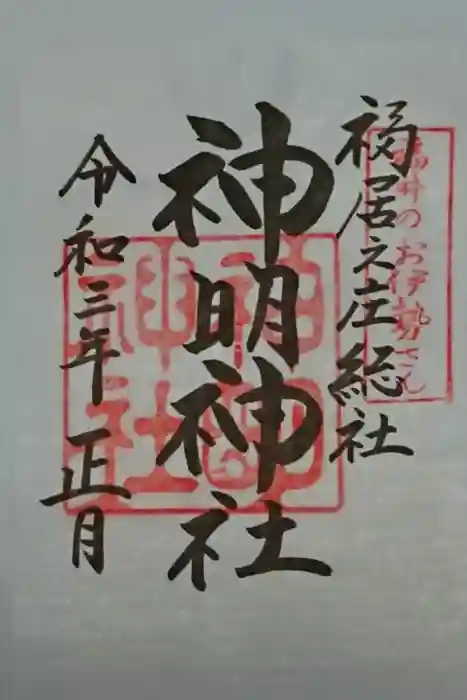 福居之庄総社
福井のお伊勢さん
神明神社
神明神社
令和三年正月